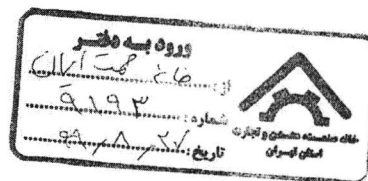 ورود به دفتر
از:
شماره: ۹۱۹۳
تاریخ: ۹۹/۸/۲۷
خانه صنعت، معدن و تجارت
استان تهران